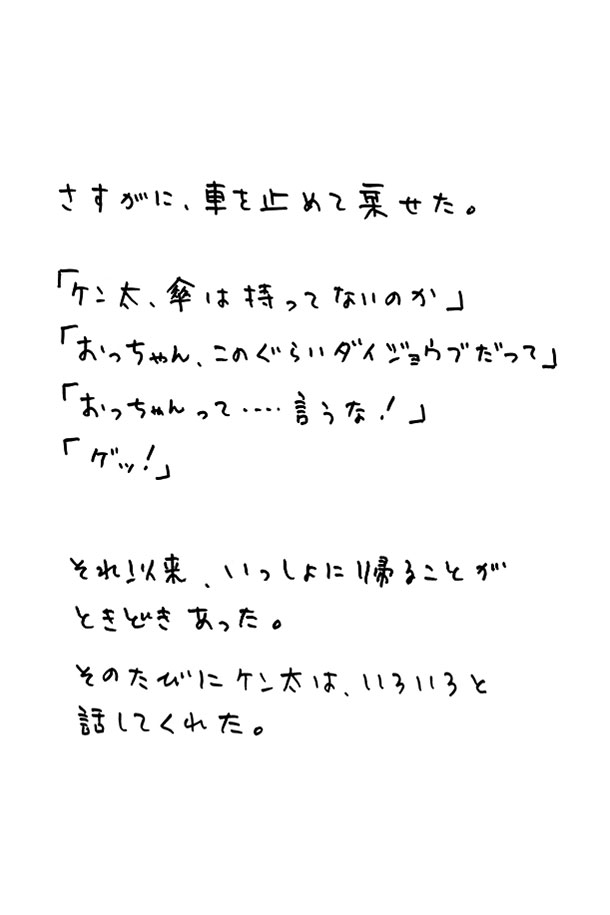 さすがに、車を止めて乗せた。
「ケン太、傘は持ってないのか」
「おっちゃん、このぐらいダイジョウブだって」
「おっちゃんって‥‥言うな!」
「ゲッ!」
それ以来、いっしょに帰ることが
ときどきあった。
そのたびにケン太は、いろいろと
話してくれた。